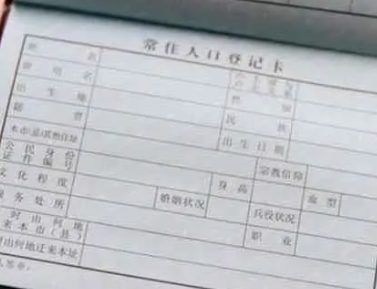 常住人口登记卡
姓 名
曾 用 名 性 别
出 生 地 民 族
籍 贯 出 生 日 期
本市(县)其他住址 宗教信仰
公民身份
证件编号 身 高 血 型
文化程度 婚姻状况 兵役状况
服务处所 职 业
何时由何地
来本市(县)
何时由何地迁来本址